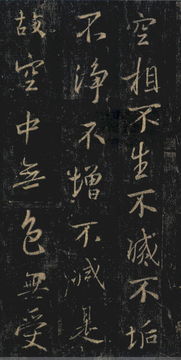 空相不生不滅不垢
不淨不增不減是
故空中無色無受